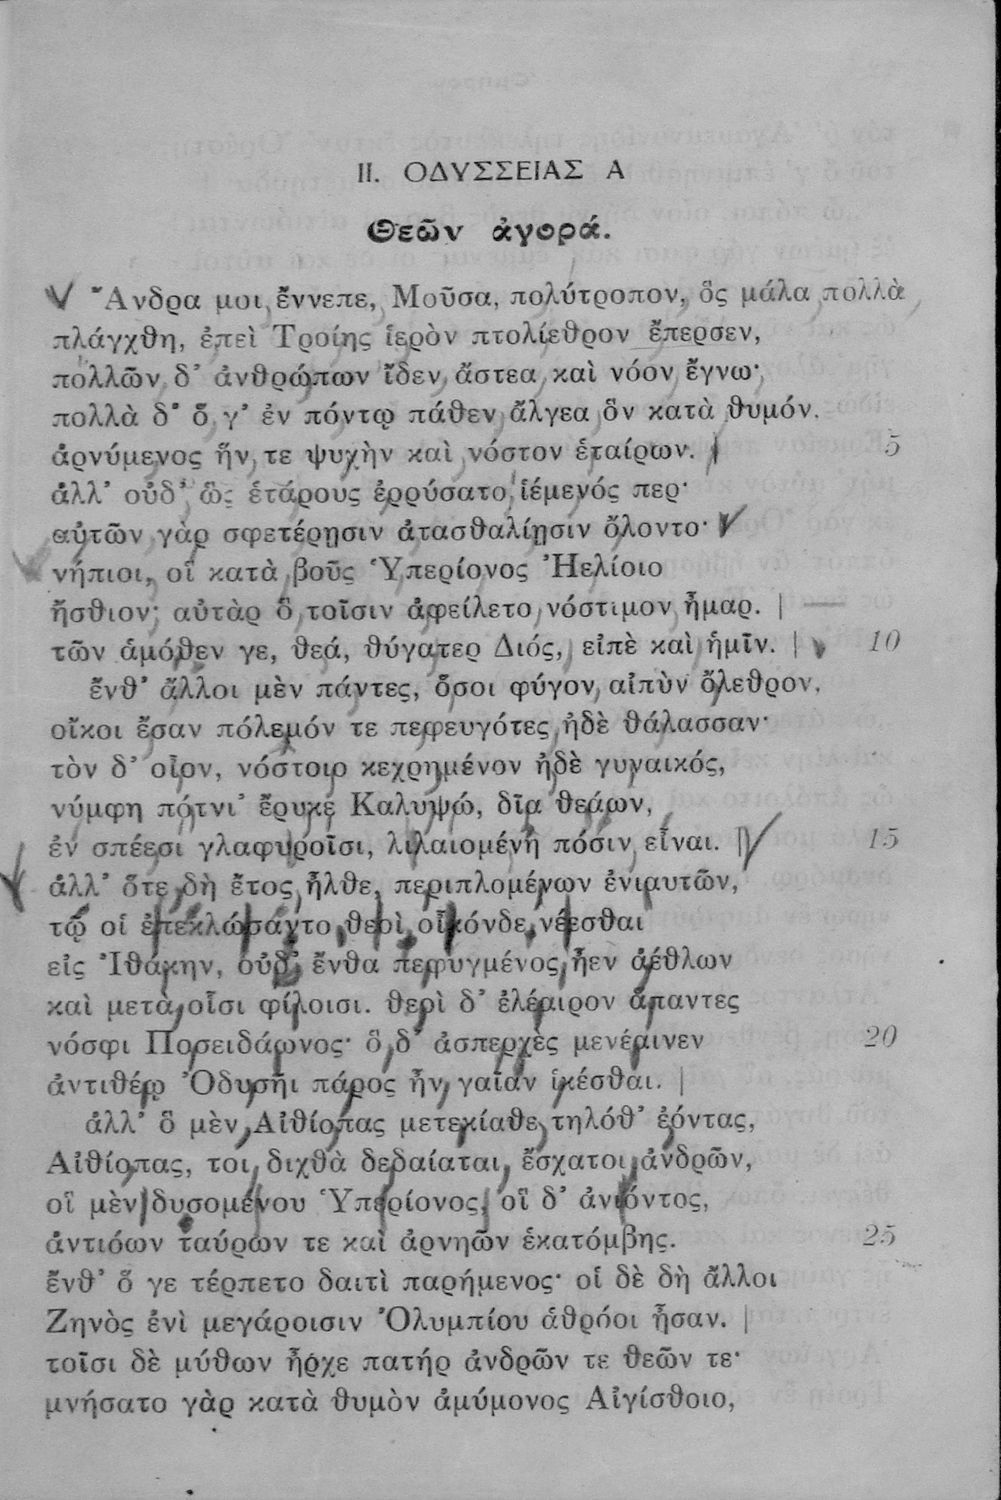 II. ΟΔΥΣΣΕΙΑΣ Α
Θεῶν ἀγορά.
Ἄνδρα μοι ἔννεπε, Μοῦσα, πολύτροπον, ὃς μάλα πολλὰ
πλάγχθη, ἐπεὶ Τροίης ἱερὸν πτολίεθρον ἔπερσεν,
πολλῶν δ’ ἀνθρώπων ἴδεν ἄστεα καὶ νόον ἔγνω·
πολλὰ δ’ ὅ γ’ ἐν πόντῳ πάθεν ἄλγεα ὃν κατὰ θυμόν.
ἀρνύμενος ἥν τε ψυχὴν καὶ νόστον ἑταίρων. 5
ἀλλ’ οὐδ’ ὣς ἑτάρους ἐρρύσατο ἱέμενός περ·
αὐτῶν γὰρ σφετέρῃσιν ἀτασθαλίῃσιν ὄλοντο·
νήπιοι, οἳ κατὰ βοῦς Ὑπερίονος Ἠελίοιο
ἤσθιον· αὐτὰρ ὃ τοῖσιν ἀφείλετο νόστιμον ἦμαρ.
τῶν ἁμόθεν γε, θεά, θύγατερ Διός, εἰπὲ καὶ ἡμῖν. 10
ἔνθ’ ἄλλοι μὲν πάντες, ὅσοι φύγον αἰπὺν ὄλεθρον,
οἴκοι ἔσαν πόλεμόν τε πεφευγότες ἠδὲ θάλασσαν·
τὸν δ’ οἶον, νόστοιο κεχρημένον ἠδὲ γυναικός,
νύμφη πότνι’ ἔρυκε Καλυψώ, δῖα θεάων,
ἐν σπέεσι γλαφυροῖσι, λιλαιομένη πόσιν εἶναι. 15
ἀλλ’ ὅτε δὴ ἔτος ἦλθε, περιπλομένων ἐνιαυτῶν,
τῷ οἱ ἐπεκλώσαντο θεοὶ οἶκόνδε νέεσθαι
εἰς Ἰθάκην, οὐδ’ ἔνθα πεφυγμένος ἦεν ἀέθλων
καὶ μετὰ οἷσι φίλοισι. θεοὶ δ’ ἐλέαιρον ἅπαντες
νόσφι Ποσειδάωνος· ὃ δ’ ἀσπερχὲς μενέαινεν 20
ἀντιθέῳ Ὀδυσῆι πάρος ἣν γαῖαν ἱκέσθαι.
ἀλλ’ ὃ μὲν Αἰθίοπας μετεκίαθε τηλόθ’ ἐόντας,
Αἰθίοπας, τοὶ διχθὰ δεδαίαται, ἔσχατοι ἀνδρῶν,
οἳ μὲν δυσομένου Ὑπερίονος, οἳ δ’ ἀνιόντος,
ἀντιόων ταύρων τε καὶ ἀρνηῶν ἑκατόμβης. 25
ἔνθ’ ὅ γε τέρπετο δαιτὶ παρήμενος· οἱ δὲ δὴ ἄλλοι
Ζηνὸς ἐνὶ μεγάροισιν Ὀλυμπίου ἁθρόοι ἦσαν.
τοῖσι δὲ μύθων ἦρχε πατὴρ ἀνδρῶν τε θεῶν τε·
μνήσατο γὰρ κατὰ θυμὸν ἀμύμονος Αἰγίσθοιο,